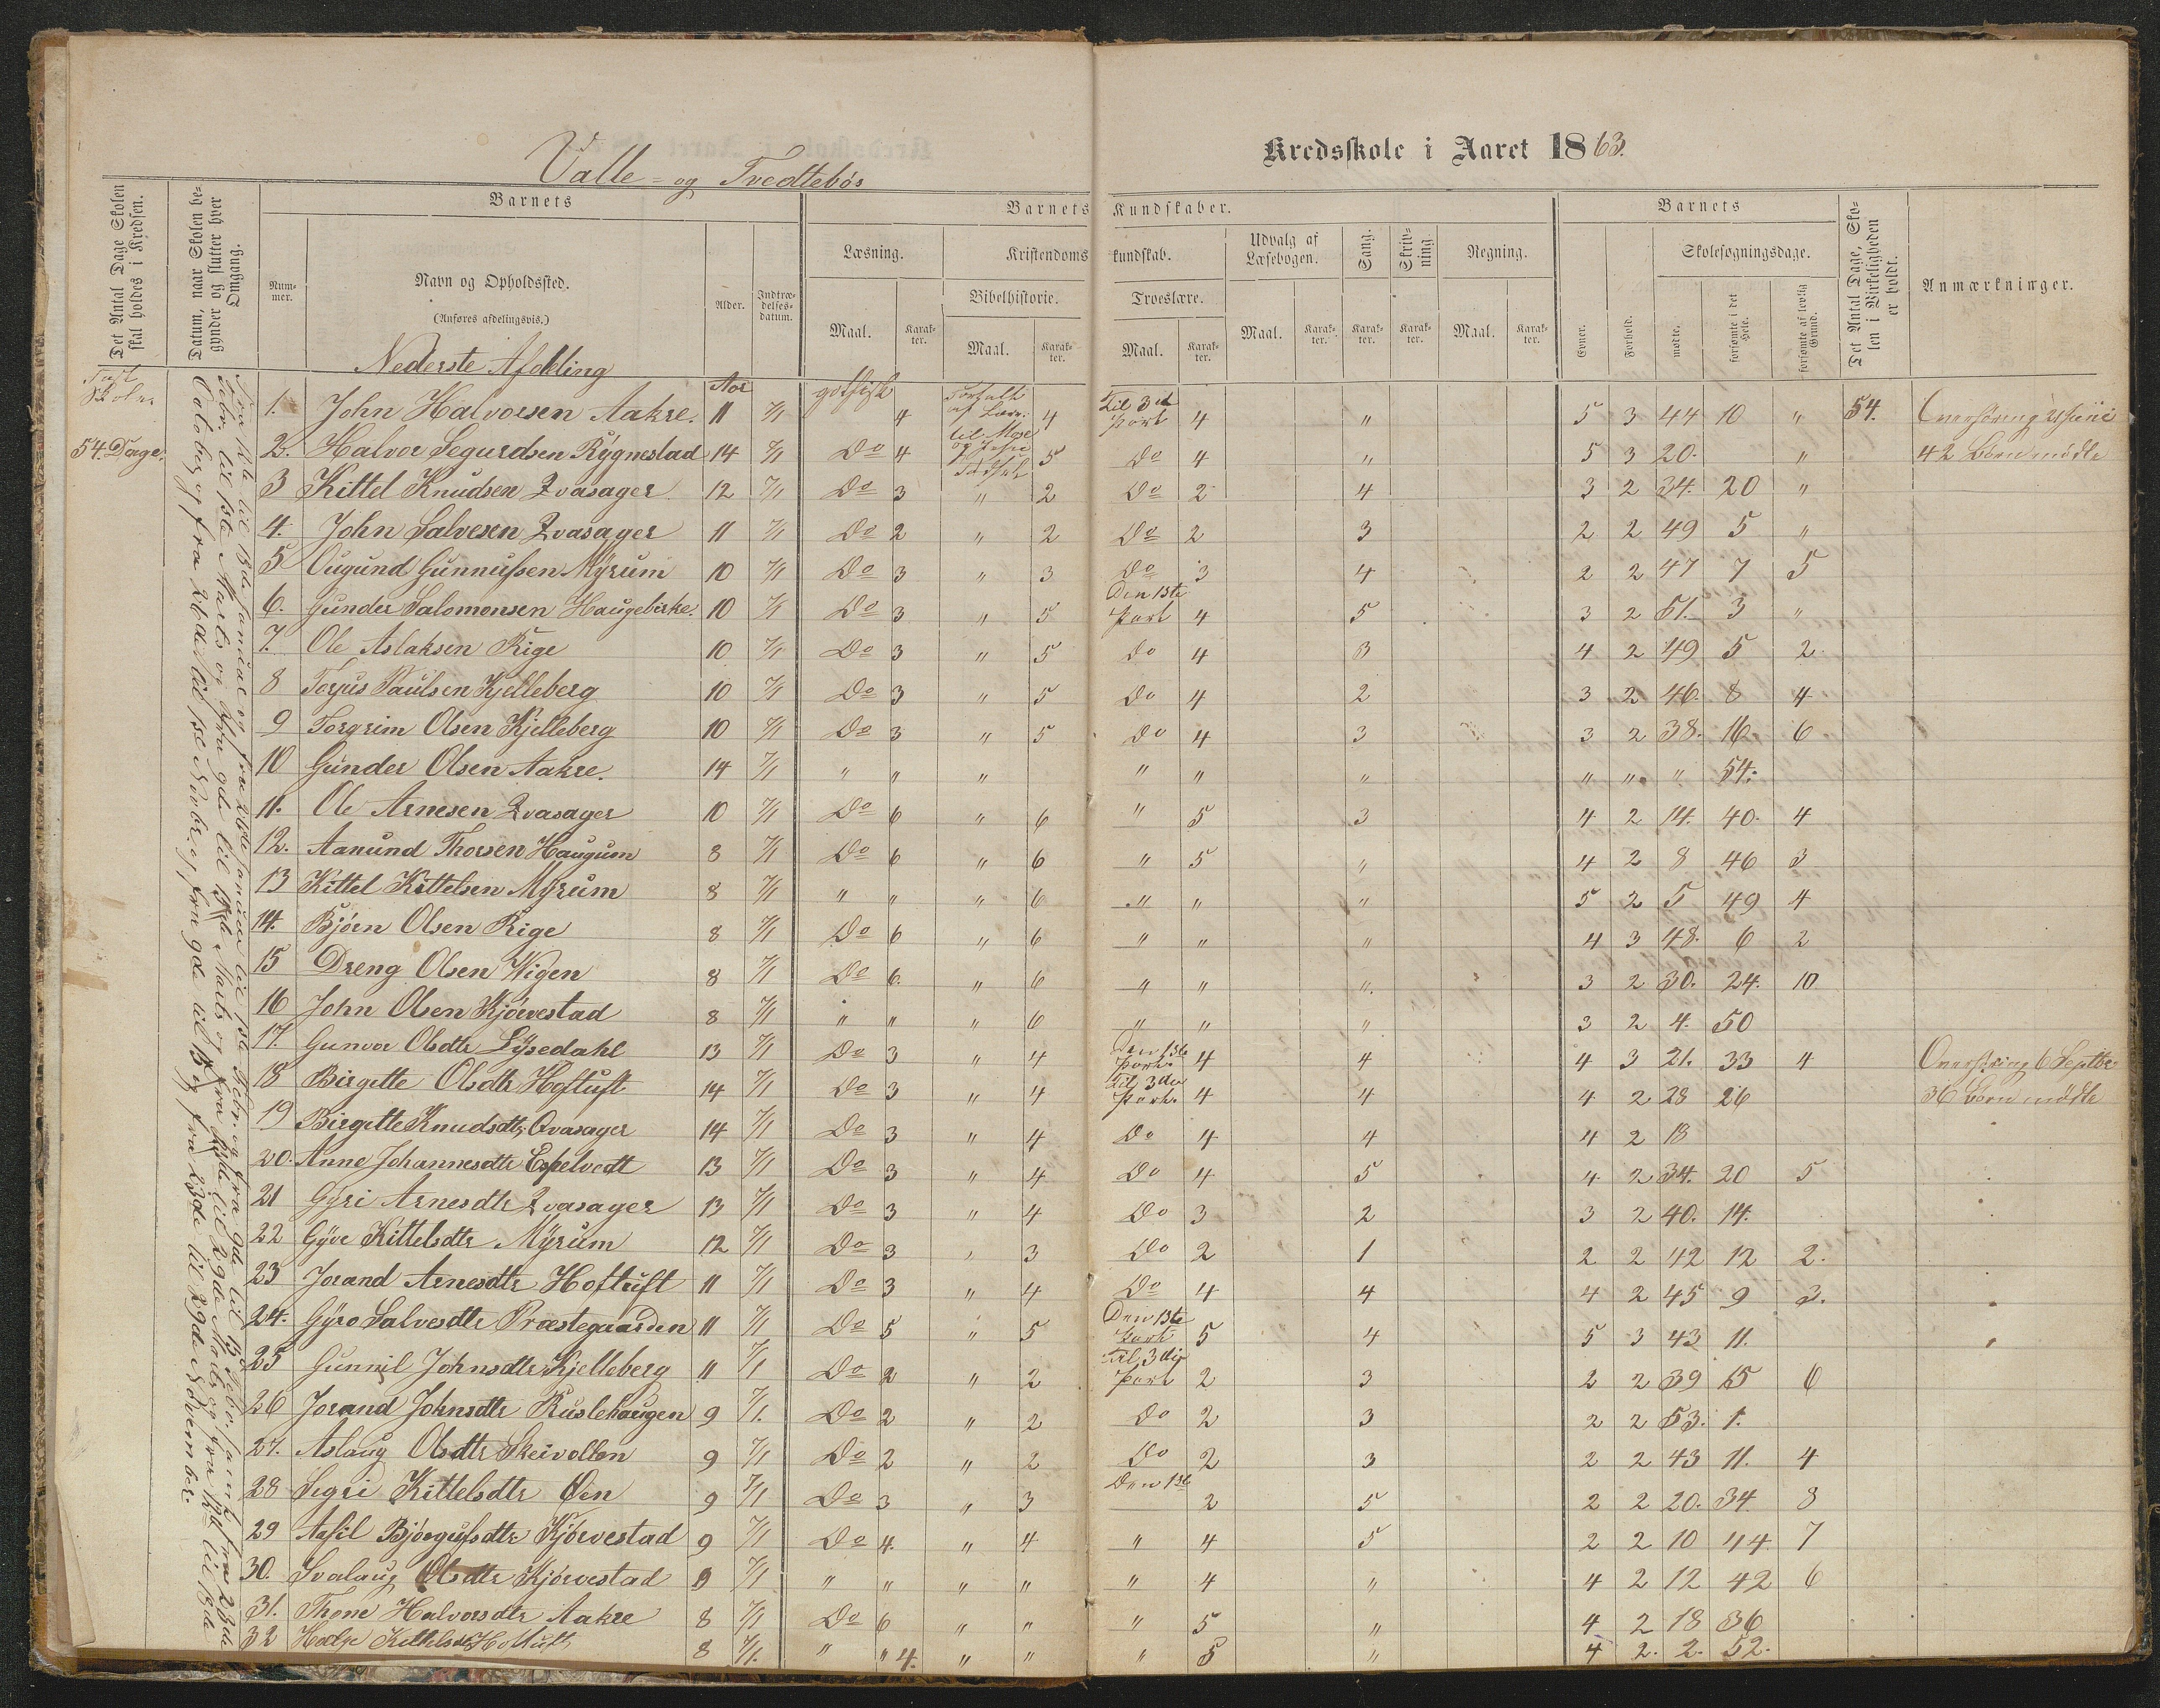 Valle- og Tvedtebös
Kredsskole i Aaret 1863.
Det Antal Dage Skolen skal holdes i Kredsen.
Datum, naar Skolen begynder og slutter hver Omgang.
Barnets
Barnets Kundskaber.
Barnets
Det Antal Dage, Skolen i Virkeligheden er holdt.
Anmærkninger.
Nummer.
Navn og Opholdssted.
(Anføres afdelingsvis.)
Alder.
Indtrædelsesdatum.
Læsning.
Kristendomskundskab.
Udvalg af Læsebogen.
Sang.
Skrivning.
Regning.
Skolesøgningsdage.
Bibelhistorie.
Troeslære.
Maal.
Karakter.
Maal.
Karakter.
Maal.
Karakter.
Maal.
Karakter.
Karakter.
Karakter.
Maal.
Karakter.
Evner.
Forhold.
mødte.
forsømte i det Hele.
forsømte af lovlig Grund.
Nederste Afdeling
Aar
54 Dage.
1. John Halvorsen Aakre. 11 7/1 gothisk 4 4 Til 3die Part 4 " 5 3 44 10 " 54.
2. Halvor Segurdsen Rygnestad 14 7/1 Do 4 5 Do 4 " 5 3 20. " 42 Børn mødte
3 Kittel Knudsen Qvasager 12 7/1 Do 3 " 2 Do 2 4 3 2 34. 20 "
4. John Salvesen Qvasager 11 7/1 Do 2 " 2 Do 2 3 2 2 49 5 "
5 Ougund Gunnufsen Myrum 10 7/1 Do 3 " 3 Do 3 4 2 2 47 7 5
6. Gunder Salomonsen Haugebirke. 10 7/1 Do 3 " 5 Den 1ste Part 4 5 3 2 51. 3 "
7. Ole Aslaksen Rige 10 7/1 Do 3 " 5 Do 4 3 4 2 49 5 2.
8 Torjus Paulsen Kjelleberg 10 7/1 Do 3 " 5 Do 4 2 3 2 46. 8 4
9 Torgrim Olsen Kjelleberg 10 7/1 Do 3 " 5 Do 4 3 3 2 38. 16. 6
10 Gunder Olsen Aakre. 14 7/1 " " " " " " " " " 54.
11. Ole Arnesen Qvasager 10 7/1 Do 6 " 6 " 5 3 4 2 14. 40. 4
12. Aanund Thorsen Haugum 8 7/1 Do 6 " 6 " 5 " 4 2 8 46 3
13 Kittel Kittelsen Myrum 8 7/1 " " " 6 " " " 5 2 5 49 4
14. Bjørn Olsen Rige 8 7/1 Do 6 " 6 " " " 4 3 48. 6 2
15 Dreng Olsen Wigen 8 7/1 Do 6. " 6 " " " 3 2 30. 24. 10
16 John Olsen Kjørvestad 8 7/1 " " " 6 " " " 3 2 4. 50
17. Gunvor Olsdtr Lysedahl 13 7/1 Do 3 " 4 Den 1ste Part. 4 4 4 3 21. 33 4
18 Birgitte Olsdtr Hoftuft 14 7/1 Do 3 " 4 Til 3die Part. 4 4 4 2 28 26 36 Børn mødte
19 Birgitte Knudsdtr Qvasager 14 7/1 Do 3 " 4 Do 4 4 4 2 18
20. Anne Johannesdtr Espelvedt 13 7/1 Do 3 " 4 Do 4 5 4 2 34. 20 5
21 Gyri Arnesdtr Qvasager 13 7/1 Do 3 " 4 Do 3 2 3 2 40. 14.
22 Gyve Kittelsdtr Myrum 12 7/1 Do 3 " 3 Do 2 1 2 2 42 12 2.
23 Jorand Arnesdtr Hoftuft 11 7/1 Do 3 " 4 Do 4 4 4 2 45 9 3.
24. Gyro Salvesdtr Præstegaarden 11 7/1 Do 5 " 5 Den 1ste Part 5 4 5 3 43 11.
25 Gunnil Johnsdtr Kjelleberg 11 7/1 Do 2 " 2 Til 3die Part 2 3 2 2 39 15 6
26 Jorand Johnsdtr Ruslehaugen 9 7/1. Do 2 " 2 Do 2 3 2 2 53. 1.
27. Aslaug Olsdtr Skeivollen 9 7/1 Do 2 " 2 Do 2 3 2 2 43 11. 4
28 Segri Kittelsdtr Øen 9 7/1 Do 3 " 3 Den 1ste 2 5 2 2 20. 34 8
29 Aasil Bjørgufsdtr Kjørvestad 9 7/1 Do 4. " 4 " 4 5 2 2 10 44 7
30. Svalaug Olsdtr Kjørvestad 7/1 " " " " " 4 " 4 2 12 42 6
31. Thone Halvorsdtr Aakre 8 7/1 Do 6 " " " 5 " 4 2 18 36
32 Kittelsdtr Hoftuft 8 7/1. " " 4. " " " 5 " 4 2. 2. 52.